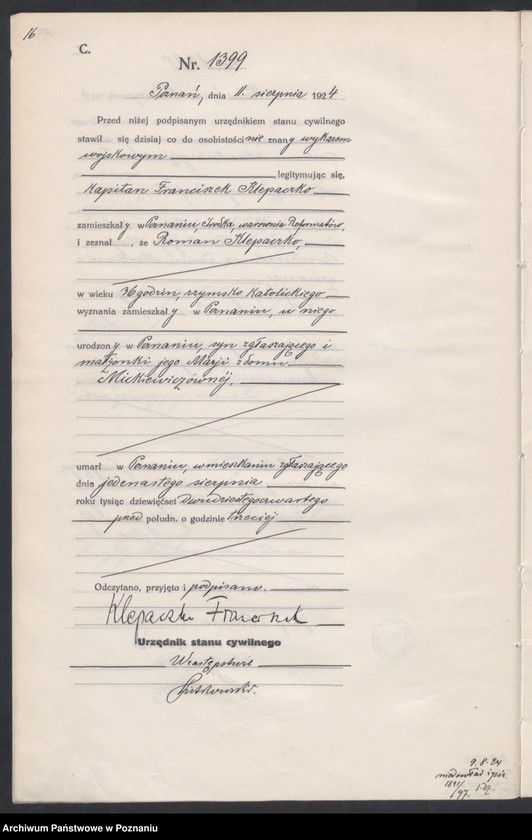 16
C.
Nr. 1399
Poznań, dnia 11. sierpnia 1924
Przed niżej podpisanym urzędnikiem stanu cywilnego
stawił się dzisiaj co do osobistości nie znany wykazem
wojskowym
legitymując się,
kapitan Franciszek Klepaczko
zamieszkały w Poznaniu Śródka, warownia Reformatów
i zeznał, że Roman Klepaczko,
w wieku 36 godzin, rzymsko katolickiego
wyznania zamieszkały w Poznaniu, u niego
urodzony w Poznaniu, syn zgłaszającego i
małżonki jego Marji z domu
Mickiewiczównej,
umarł w Poznaniu, w mieszkaniu zgłaszającego
dnia jedenastego sierpnia
roku tysiąc dziewięćset dwudziestegoczwartego
przed połudn. o godzinie trzeciej
Odczytano, przyjęto i podpisano.
Klepaczko Franciszek
Urzędnik stanu cywilnego
W zastępstwie
9. 8. 24
1891/97.
Archiwum Państwowe w Poznaniu